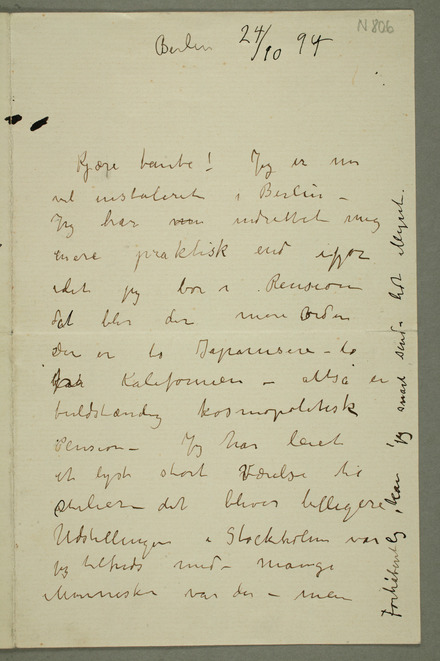 N 806
Berlin 24/10 94
Kjære tante! Jeg er nu
vel instaleret i Berlin –
Jeg har nu indrettet mig
mere praktisk end ifjor
idet jeg bor i Pension
det blir der mere Orden
Der er to Japanesere – to
fra Kalifornien – altså en
fuldstændig kosmopolitisk
Pension – Jeg har leiet
et lyst stort Værelse til
atelier – det bliver billigere
Udstillingen i Stockholm var
jeg tilfreds med – mange
Mennesker var der – men
forhåbentlig kan jeg snart sende lidt Mynt.